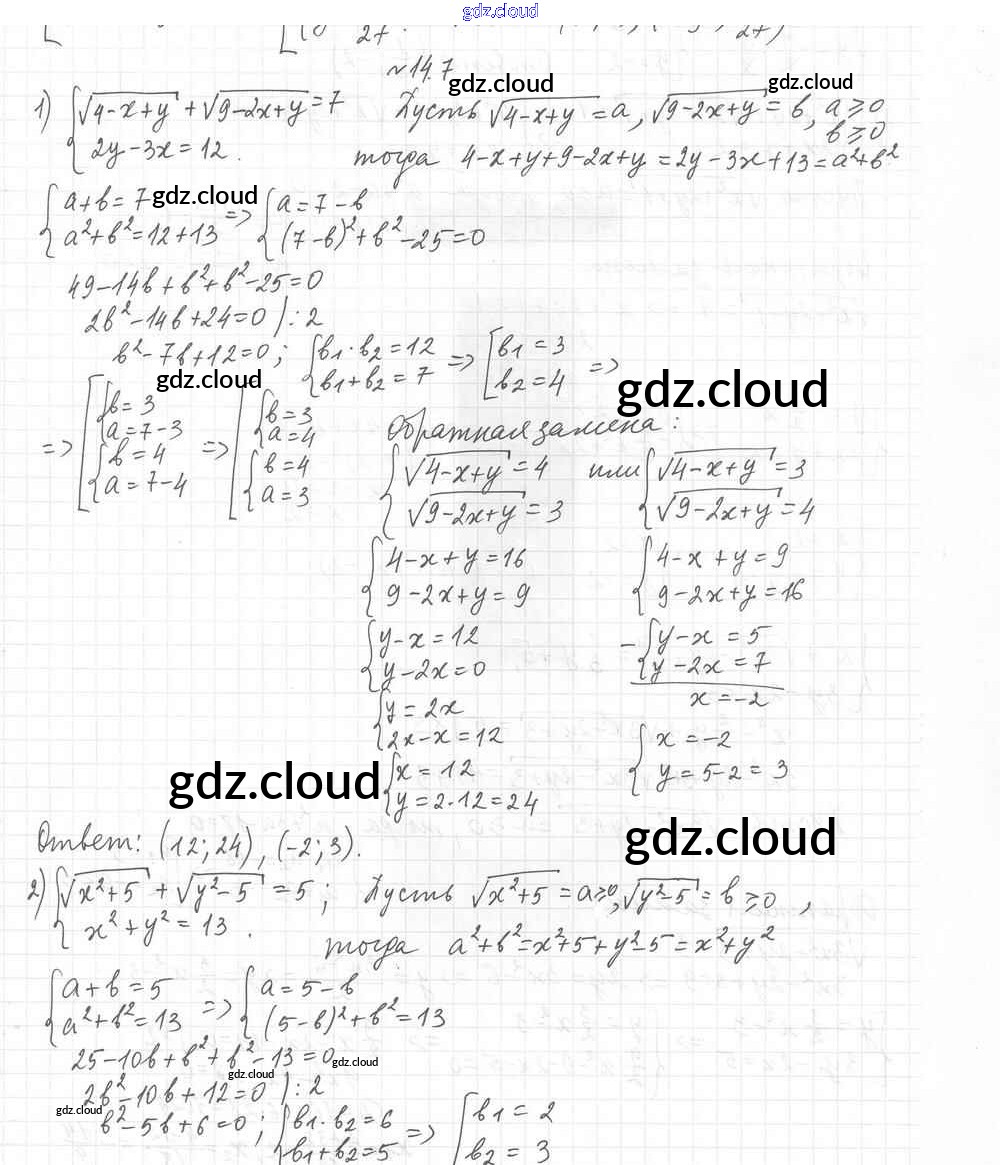 gdz.cloud
№14.7
1) { √(4-x+y) + √(9-2x+y) = 7
2y-3x=12.
Пусть √(4-x+y) = a, √(9-2x+y) = b, a≥0
b≥0
тогда 4-x+y+9-2x+y=2y-3x+13=a²+b²
gdz.cloud
gdz.cloud
{ a+b=7
a²+b²=12+13
=> { a=7-b
(7-b)²+b²-25=0
gdz.cloud
49-14b+b²+b²-25=0
2b²-14b+24=0 |:2
b²-7b+12=0; { b1·b2=12
b1+b2=7
=> [ b1=3
b2=4 =>
gdz.cloud
gdz.cloud
=> [ { b=3
a=7-3
{ b=4
a=7-4
=> [ { b=3
a=4
{ b=4
a=3
Обратная замена:
{ √(4-x+y) = 4
√(9-2x+y) = 3
или { √(4-x+y) = 3
√(9-2x+y) = 4
{ 4-x+y=16
9-2x+y=9
{ 4-x+y=9
9-2x+y=16
{ y-x=12
y-2x=0
- { y-x=5
y-2x=7
x=-2
{ y=2x
2x-x=12
{ x=12
y=2·12=24
{ x=-2
y=5-2=3
gdz.cloud
gdz.cloud
Ответ: (12;24), (-2;3).
2) { √(x²+5) + √(y²-5) = 5;
x²+y²=13.
Пусть √(x²+5) = a≥0, √(y²-5) = b≥0,
тогда a²+b²=x²+5+y²-5=x²+y²
{ a+b=5
a²+b²=13
=> { a=5-b
(5-b)²+b²=13
25-10b+b²+b²-13=0
gdz.cloud
gdz.cloud
2b²-10b+12=0 |:2
gdz.cloud
b²-5b+6=0; { b1·b2=6
b1+b2=5
=> [ b1=2
b2=3